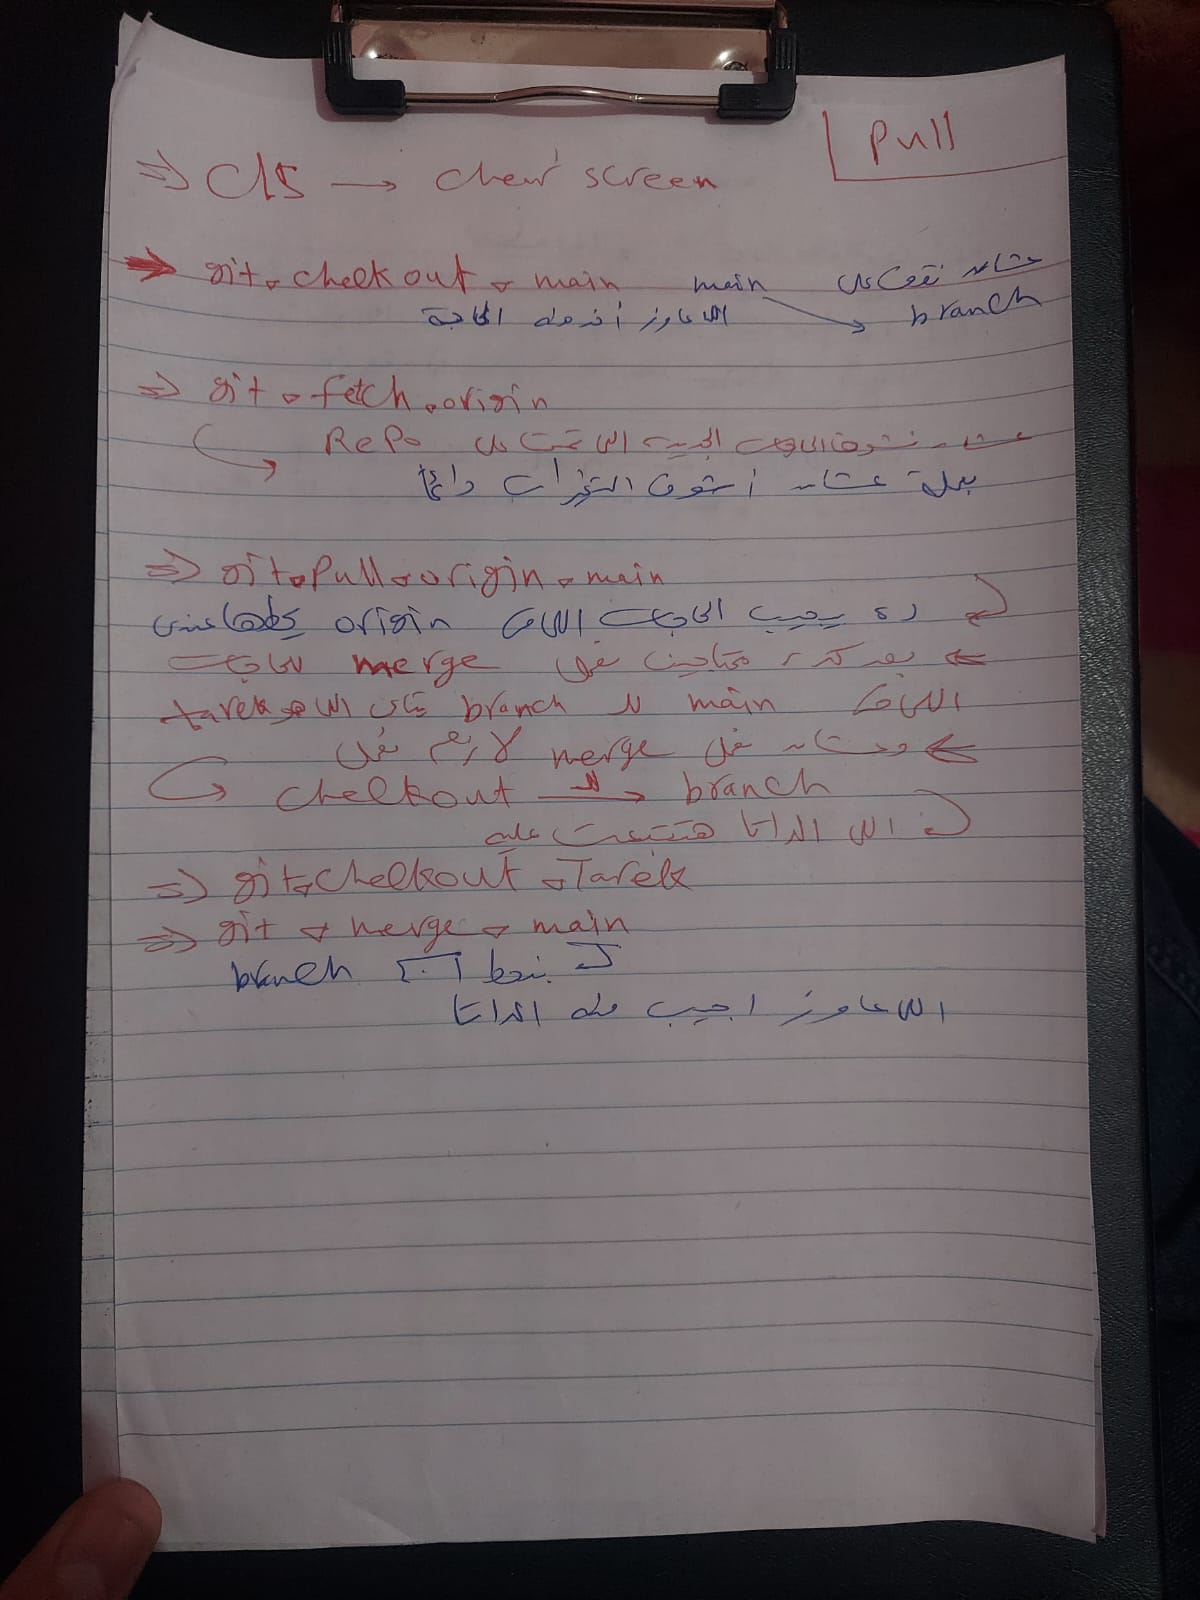 Pull
=> Cls → clear screen
→ git checkout main عشان نقف على main
branch → اللي عاوز أخد منه الحاجة
=> git fetch origin
عشان نشوف الحاجات الجديدة اللي تمت على RePo
بعمله عشان أشوف التغيرات دائما
=> git Pull origin main
ده يجيب الحاجات اللي في origin يحطها عندي
← بعد كده محتاجين نعمل merge للحاجات
اللي في main لل branch بتاعي اللي هو tarek
← وعشان نعمل merge لازم نعمل
checkout لل → branch
اللي الداتا هتتبعت عليه
=> git checkout Tarek
=> git merge main
بنحط branch
اللي عاوز اجيب منه الداتا